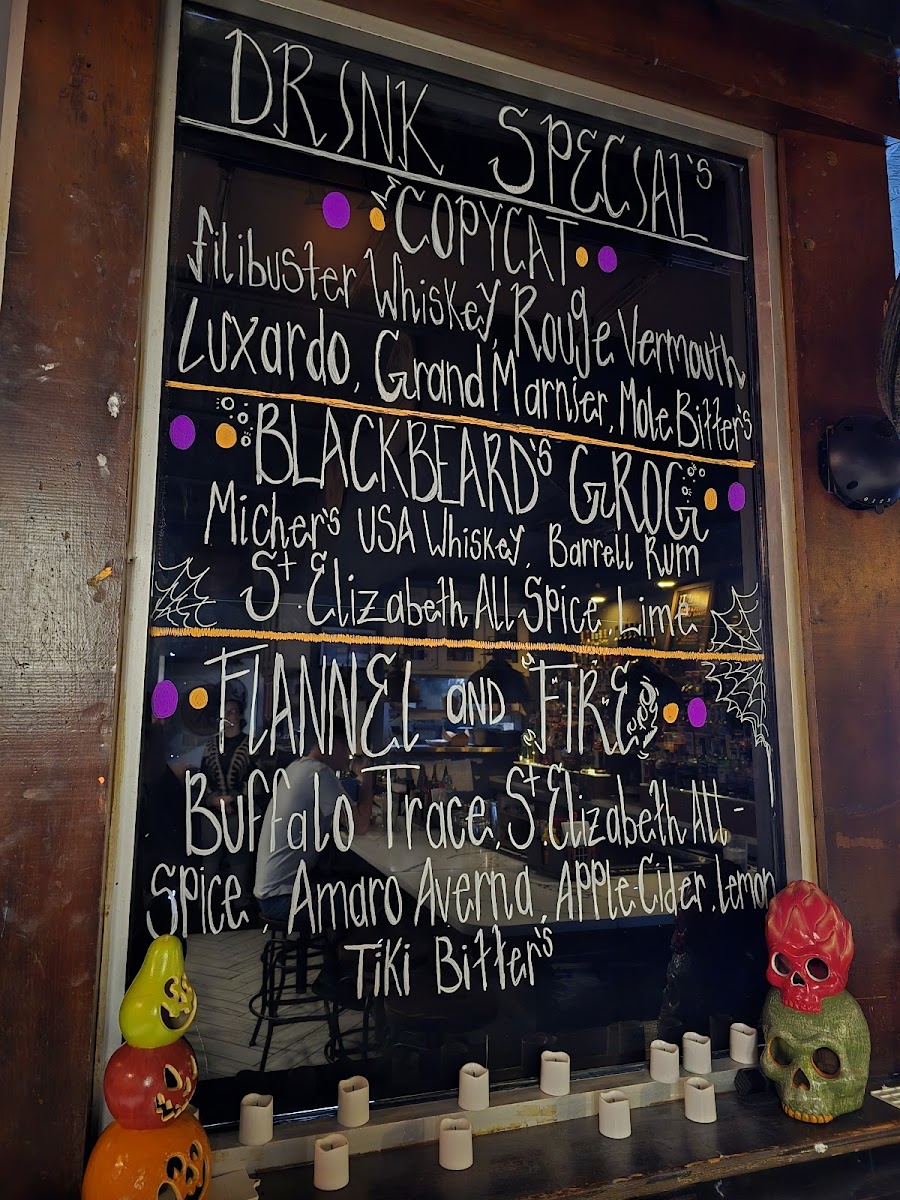 DRINK SPECIAL'S
COPYCAT
filibuster Whiskey, Rouge Vermouth
Luxardo, Grand Marnier, Mole Bitter's
BLACKBEARD'S GROG
Micher's USA Whiskey, Barrell Rum
St. Elizabeth All Spice, Lime
FLANNEL AND FIRE
Buffalo Trace, St. Elizabeth All-
Spice, Amaro Averna, Apple Cider, Lemon
Tiki Bitter's